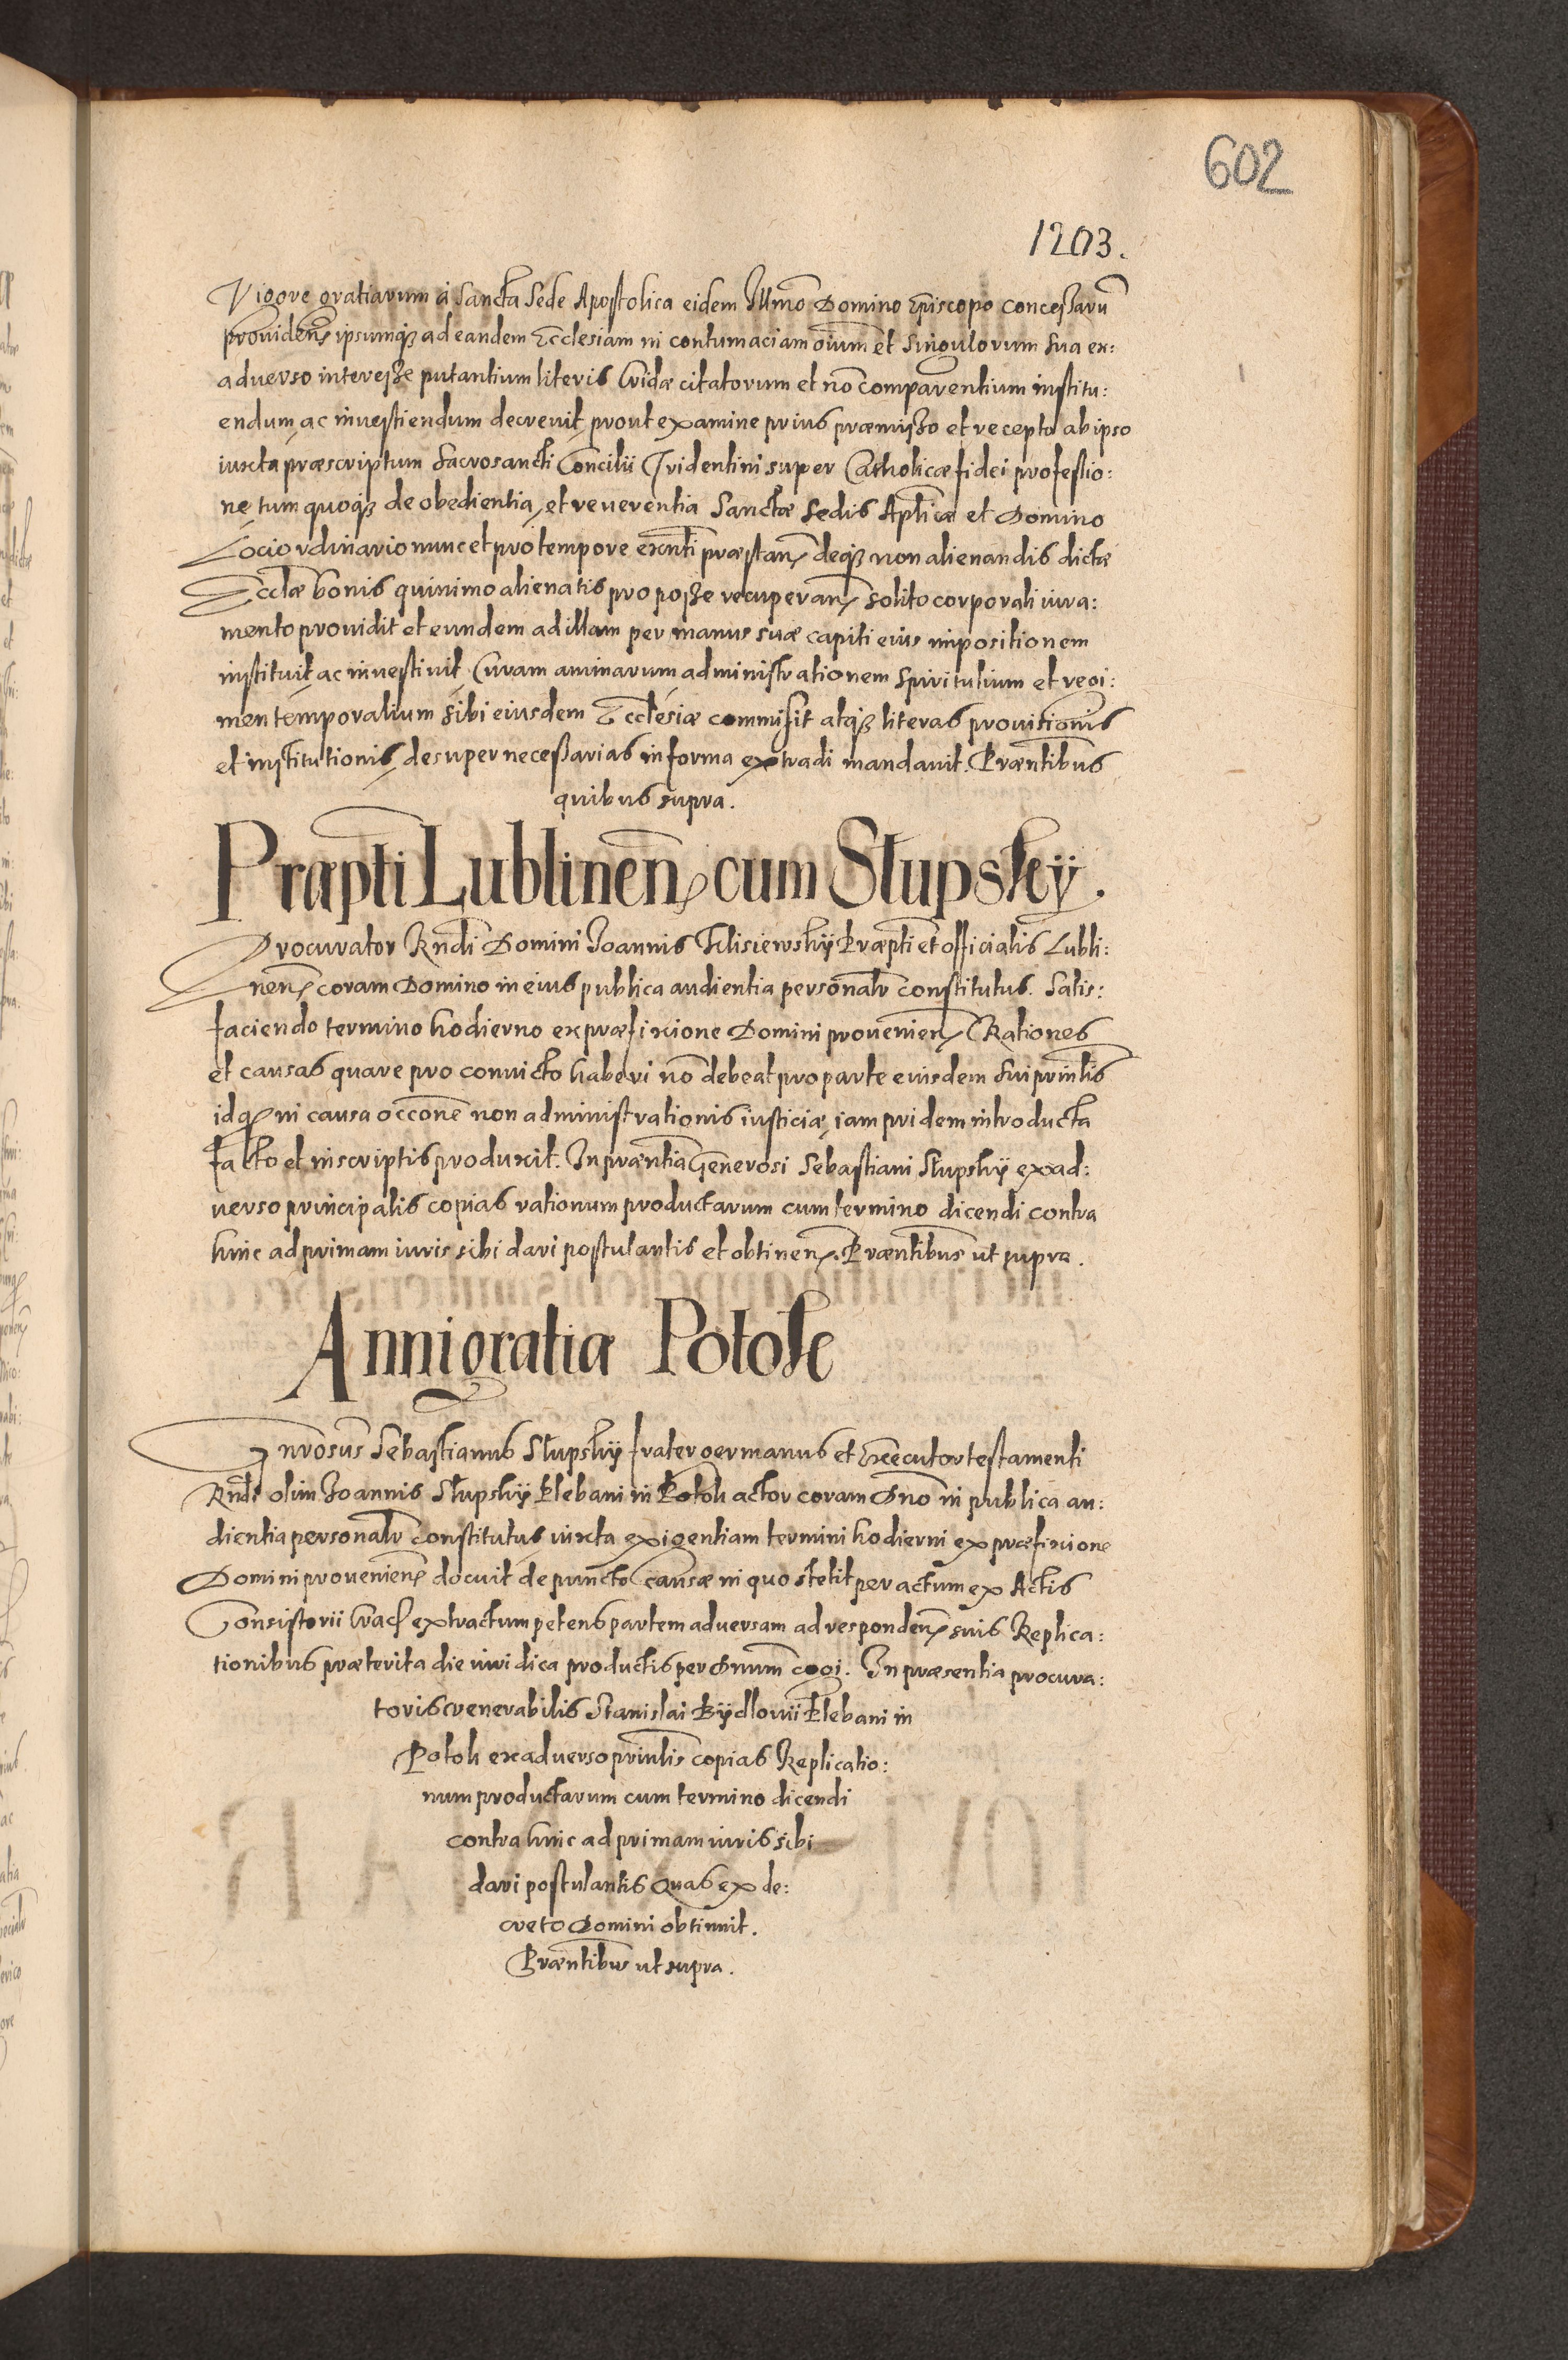 602
1203.
Vigore gratiarum à Sancta Sede Apostolica eidem Illmo Domino Episcopo concessarũ
prouideñ ipsumq₃ ad eandem Ecclesiam in contumaciam oium et singulorum sua ex:
aduerso interesse putantium literis Cridæ citatorum et nõ comparentium institu:
endum, ac inuestiendum decreuit, prout examine prius præmisso et recepto ab ipso
iuxta præscriptum Sacrosancti Concilii Tridentini super Catholicæ fidei professio:
ne, tum quoq₃ de obedientia, et reuerentia Sanctæ Sedis Aplicæ et Domino
Loci ordinario nunc et pro tempore exnti præstañ deq₃ non alienandis dictæ
Eccłæ bonis quinimo alienatis pro posse recuperañ solito corporali iura:
mento prouidit et eundem ad illam per manus suæ capiti eius impositionem
instituit, ac inuestiuit, Curam animarum administrationem spiritulium et regi:
men temporalium sibi eiusdem Ecclesiæ commisit atq₃ literas prouisionis
et institutionis, desuper necessarias in forma extradi mandauit. Præntibus
quibus supra.
Præpti Lublineñ cum Słupsky.
Procurator Rndi Domini Joannis Klisiewsky Præpti et officialis Lubli:
neñ coram Domino in eius publica audientia personalr constitutus. Satis:
faciendo termino hodierno ex præfixione Domini prouenieñ Rationes
et causas quare pro conuicto haberi nõ debeat pro parte eiusdem sui prinlis
idq₃ in causa occone non administrationis iusticiæ, iam pridem introducta
facto et in scriptis produxit. In præntia Generosi Sebastiani Słupsky ex ad:
uerso principalis copias rationum productarum cum termino dicendi contra
hinc ad primam iuris sibi dari postulantis et obtineñ. Præntibus ut supra.
Anni gratiæ Potok
Gnrosus Sebastianus Słupsky frater germanus et Executor testamenti
Rndi olim Joannis Słupsky Plebani in Potok actor coram Dno in publica au:
dientia personalr constitutus, iuxta exigentiam termini hodierni ex præfixione
Domini prouenieñ docuit de puncto causæ in quo stetit per actum ex Actis
Consistorii Crac extractum petens partem aduersam ad respondeñ suis Replica:
tionibus præterita die iuridica productis per Dnum cogi. In præsentia procura:
toris venerabilis Stanislai Bydlowii Plebani in
Potok ex aduerso prinlis copias Replicatio:
num productarum cum termino dicendi
contra hinc ad primam iuris sibi
dari postulantis Quas ex de:
creto Domini obtinuit.
Præntibus ut supra.